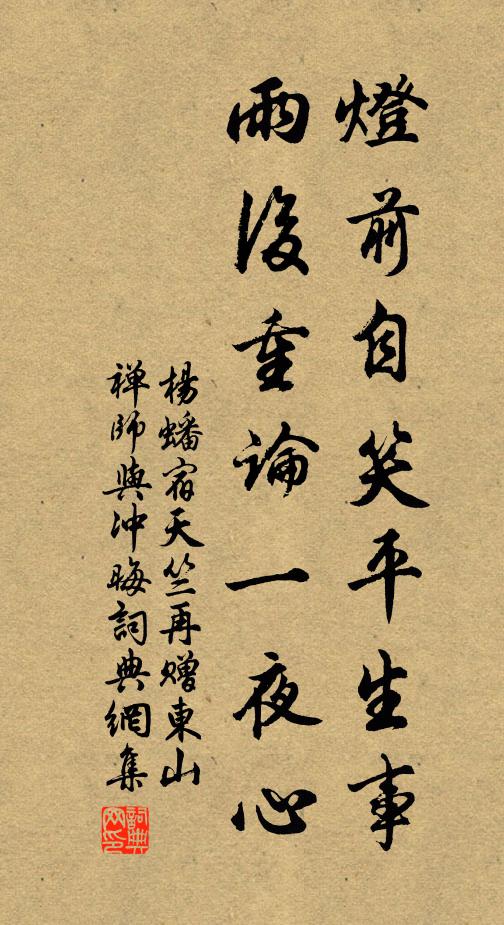 燈前自笑平生事
雨後重論一夜心
楊蟠宿天竺再贈東山
禅師與沖晦詞典網集
詞典
网印